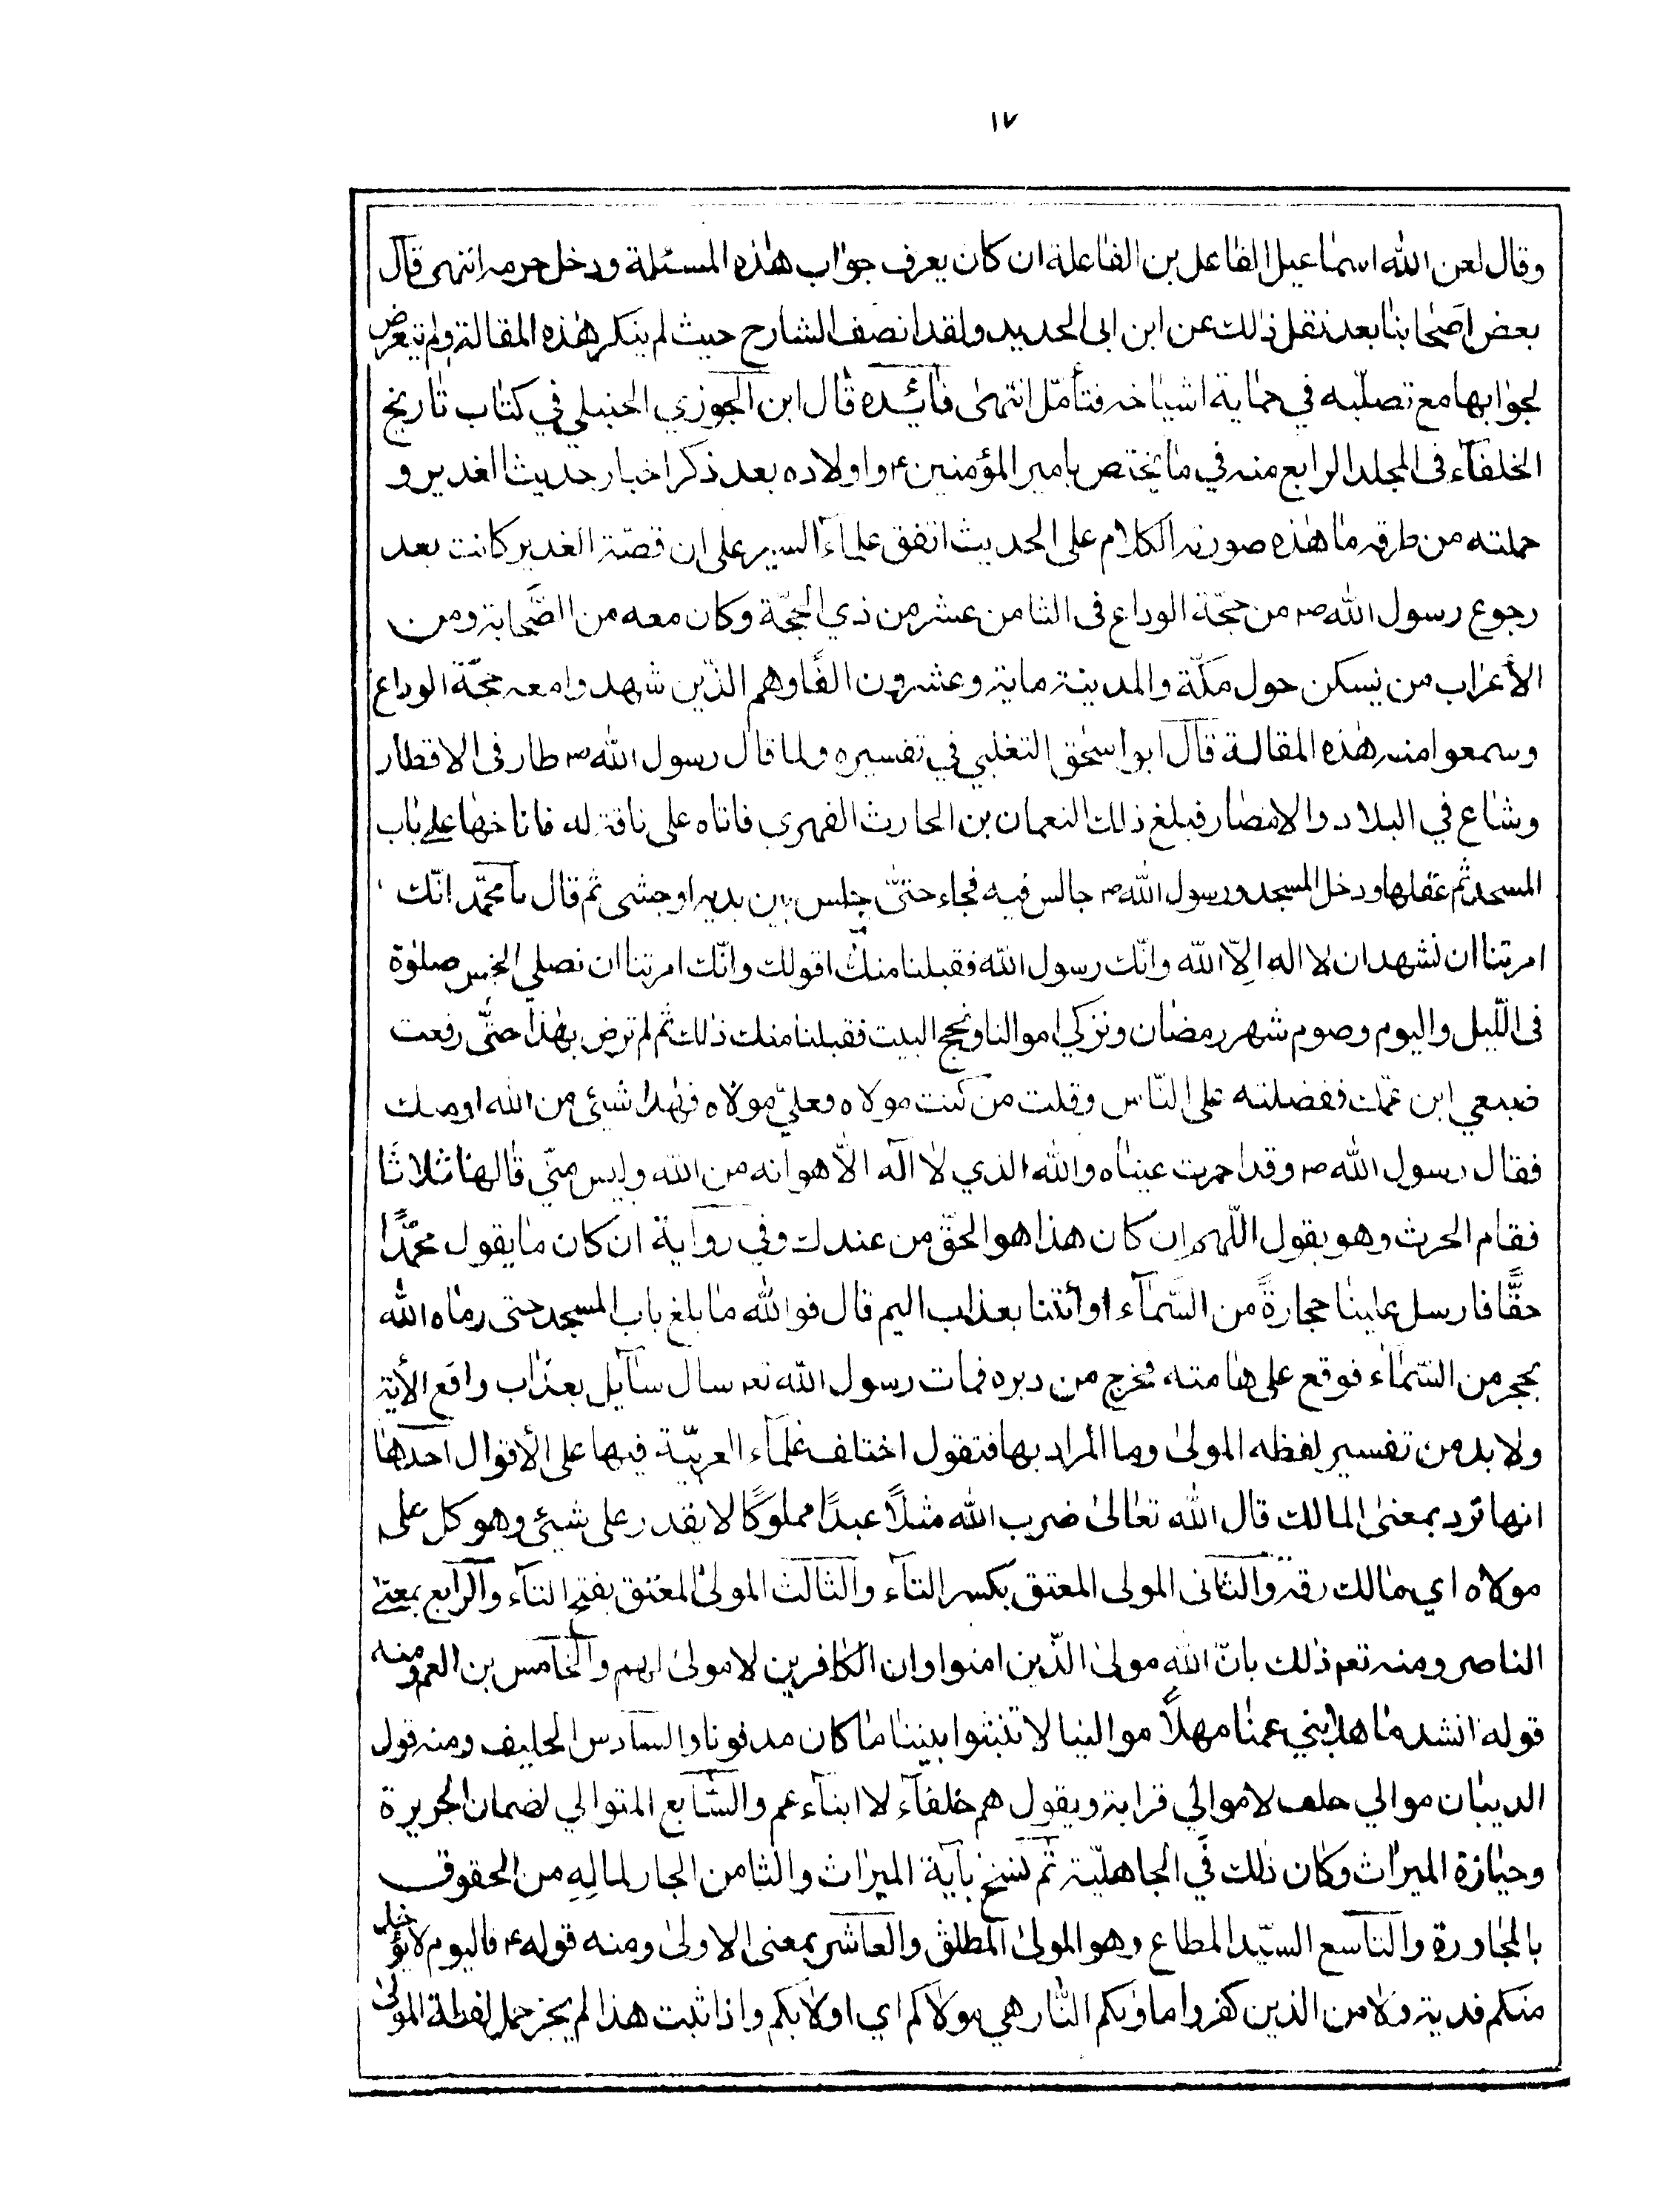 ١٧
وقال لعن الله اسماعيل الفاعل بن الفاعلة ان كان يعرف جواب هذه المسئلة ودخل حرمه انتهى قال
بعض اصحابنا بعد نقل ذلك عن ابن ابى الحديد ولقد انصف الشارح حيث لم ينكر هذه المقالة ولم يتعرض
لجوابها مع تصلّبه في حماية اشياخه فتأمّل انتهى فائدة قال ابن الجوزي الحنبلي في كتاب تاريخ
الخلفآء فى المجلد الرابع منه في ما يختص بامير المؤمنين ع واولاده بعد ذكر اخبار حديث الغدير و
جملته من طرقه ما هذه صورته الكلام على الحديث اتفق علمآء السير على ان قصّة الغدير كانت بعد
رجوع رسول الله ص من حجّة الوداع فى الثامن عشر من ذي الحجّة وكان معه من الصّحابة ومن
الأعراب من يسكن حول مكّة والمدينة ماية وعشرون الفًا وهم الذّين شهدوا معه حجّة الوداع
وسمعوا منه هذه المقالة قال ابو اسحق التغلبي في تفسيره ولما قال رسول الله ص طار فى الاقطار
وشاع في البلاد والامصار فبلغ ذلك النعمان بن الحارث الفهري فاتاه على ناقة له فاناخها على باب
المسجد ثم عقلها ودخل المسجد ورسول الله ص جالس فيه فجاء حتىّ جلس بين يديه او جثى ثم قال يا محمّد انّك
امرتنا ان نشهد ان لا اله الاّ الله وانّك رسول الله فقبلنا منك اقولك وانّك امرتنا ان نصلي الخمس صلوة
فى اللّيل واليوم وصوم شهر رمضان ونزكي اموالنا ونحج البيت فقبلنا منك ذلك ثم لم ترض بهذا حتّى رفعت
ضبعي ابن عمّك ففضلته على النّاس وقلت من كنت مولاه وفعليّ مولاه فهذا شيئ من الله او منك
فقال رسول الله ص وقد احمرت عيناه والله الذي لا اله الاّ هو انه من الله وليس منّي قالها ثلاثًا
فقام الحرث وهو يقول اللّهم ان كان هذا هو الحقّ من عندك وفي رواية ان كان ما يقول محمّدًا
حقًّا فارسل علينا حجارةً من السّمآء او أتنا بعذاب اليم قال فو الله ما بلغ باب المسجد حتى رماه الله
بحجر من السّمآء فوقع على هامته فخرج من دبره فمات رسول الله تعه سال سآيل بعذاب واقع الأية
ولا بد من تفسير لفظه المولى وما المراد بها فتقول اختلف علمآء العربيّة فيها على الأقوال احدها
انها ترد بمعنى المالك قال الله تعالى ضرب الله مثلاً عبدًا مملوكًا لا يقدر على شيئ وهو كل على
مولاه اي مالك رقه والثانى المولى المعتق بكسر التآء والثالث المولى المعتق بفتح التآء والرابع بمعنى
الناصر ومنه تعه ذلك بانّ الله مولى الذّين امنوا وان الكافرين لا مولى لهم والخامس بن العم ومنه
قوله انشد ما هلا بني عمنا مهلاً موالينا لا تنبثوا بيننا ما كان مدفونا والسادس الحليف ومنه قول
الديبان موالي حلف لا موالي قرابة ويقول هم خلفآء لا ابنآء عم والسّابع المتوالي لضمان الجريرة
وحيازة الميراث وكان ذلك في الجاهليّة ثم نسخ بآية الميراث والثامن الجار لماله من الحقوق
بالمجاورة والتاسع السيّد المطاع وهو المولى المطلق والعاشر بمعنى الاولى ومنه قوله ع فاليوم لا يؤخذ
منكم فدية ولا من الذين كفروا ماويكم النّار هي مولاكم اي اولا بكم واذا ثبت هذا لم يجز حمل لفظة المولى